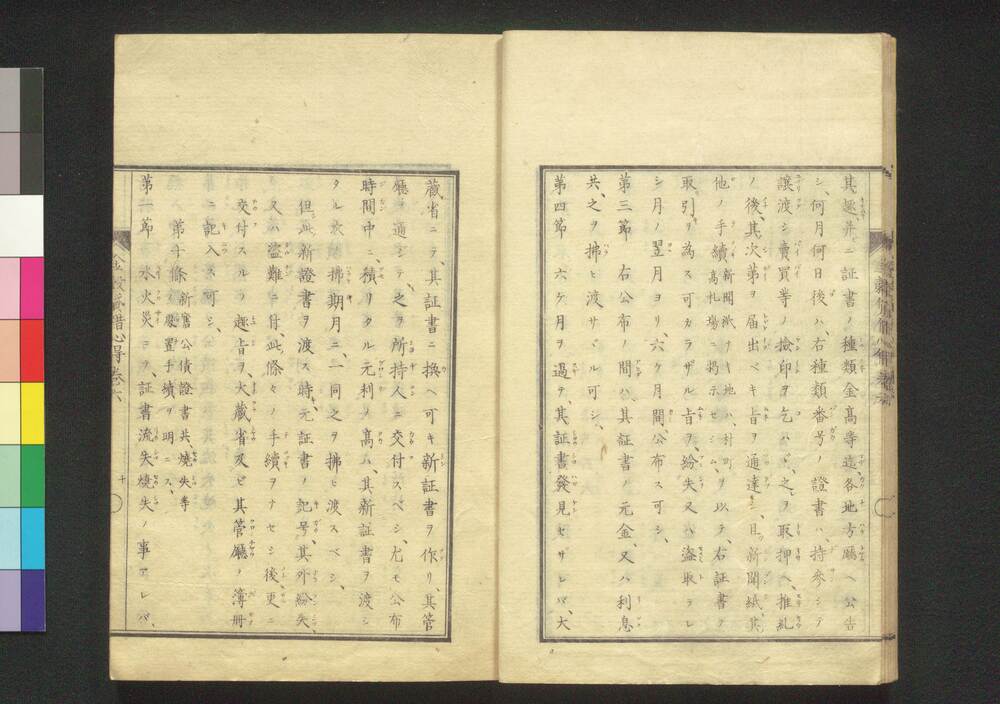 其趣并ニ証書ノ種類金高等迄、各地方廳ヘ公告
シ、何月何日後ハ、右種類番号ノ證書ハ、持参シテ
讓渡シ賣買等ノ檢印ヲ乞ハヾ、之ヲ取押ヘ、推糺
ノ後、其次第ヲ届出ベキ旨ヲ通達シ、且、新聞紙、其
他ノ手續 新聞紙ナキ地ハ、村町ノ高札場ニ掲示セシム、ヲ以テ、右証書ヲ
取引ヲ為ス可カラザル旨ヲ、紛失又ハ盗取ラレ
シ月ノ翌月ヨリ、六ケ月間、公布ス可シ、
第三節 右公布ノ間ハ、其証書ノ元金、又ハ利息
共、之ヲ拂ヒ渡サヾル可シ、
第四節 六ケ月ヲ過テ、其証書發見セザレバ、大
藏省ニテ、其証書ニ換ヘ可キ新証書ヲ作リ、其管
廳ヲ通シテ、之ヲ所持人ニ交付スベシ、尤モ公布
時間中ニ、積リタル元利ノ高ハ、其新証書ヲ渡シ
タル次ノ拂期月ニ、一同之ヲ拂ヒ渡スベシ、
但シ此新證書ヲ渡ス時、元証書ノ記号、其外紛失、
又ハ盗難ニ付、此條々ノ手續ヲナセシ後、更ニ
交付スルヲ趣旨ヲ、大藏省及ビ其管廳ノ簿冊
ニ記入ス可シ、
第十條 新舊公債證書共、燒失等
ノ處置手續ヲ明ニス、
第一節 水火災ニヲ証書流失燒失ノ事アレバ、
十